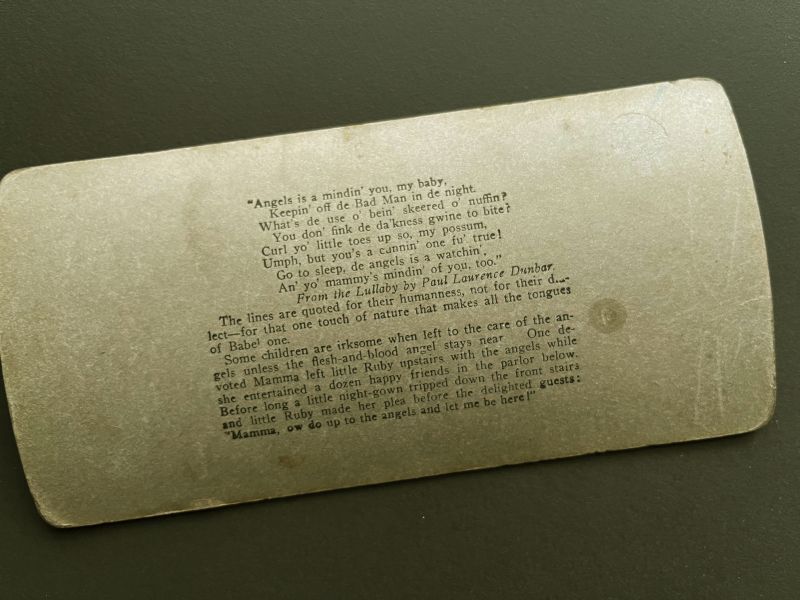 "Angels is a mindin' you, my baby,
Keepin' off de Bad Man in de night.
What's de use o' bein' skeered o' nuffin?
You don' fink de da'kness gwine to bite?
Curl yo' little toes up so, my possum,
Umph, but you's a cunnin' one fu' true!
Go to sleep, de angels is a watchin',
An' yo' mammy's mindin' of you, too."
From the Lullaby by Paul Laurence Dunbar.
The lines are quoted for their humanness, not for their
lect—for that one touch of nature that makes all the tongues
of Babel one.
Some children are irksome when left to the care of the an-
gels unless the flesh-and-blood angel stays near. One de-
voted Mamma left little Ruby upstairs with the angels while
she entertained a dozen happy friends in the parlor below.
Before long a little night-gown tripped down the front stairs
and little Ruby made her plea before the delighted guests:
"Mamma, ow do up to the angels and let me be here!"